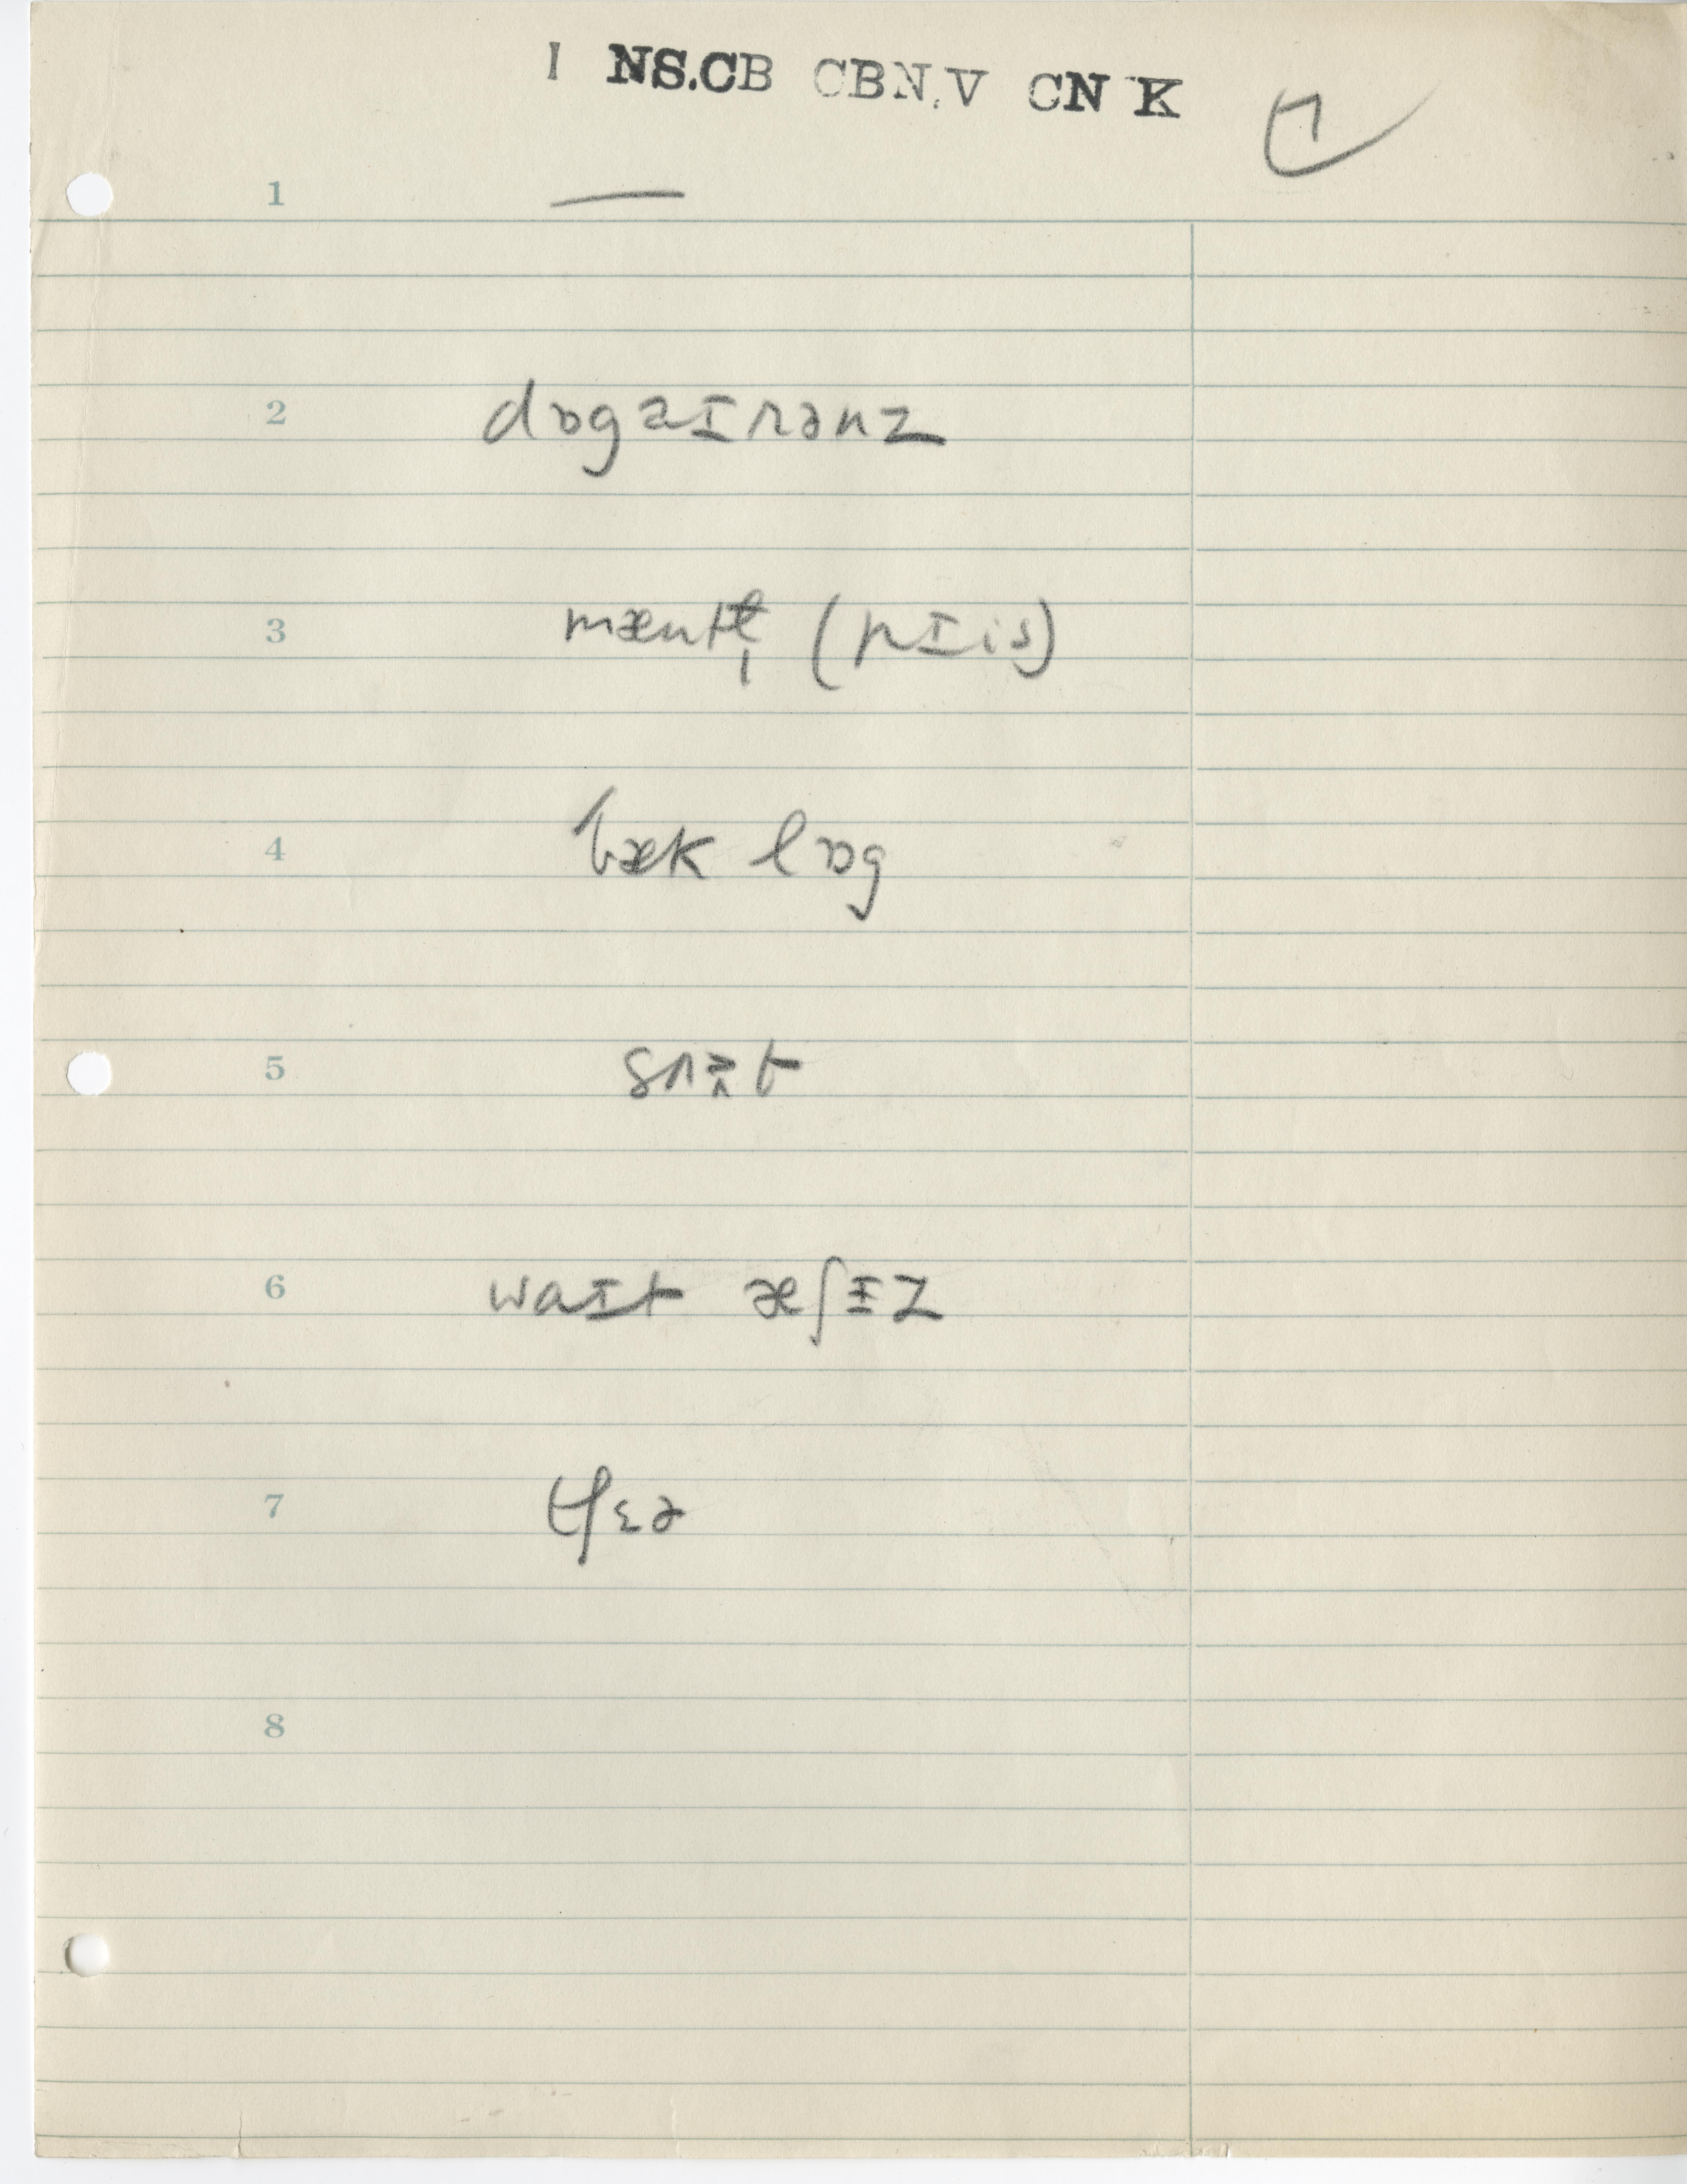 I NS.CB CBN.V CN K 7
1 —
2 dɒgaɪrənz
3 (pɪis)
4 bæk lɒg
5
6 waɪt æʃɪz
7 tʃɛə
8